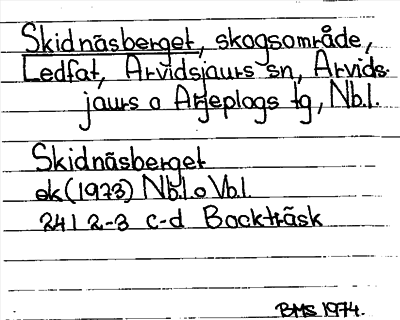 Skidnäsberget, skogsområde,
Ledfat, Arvidsjaurs sn, Arvids-
jaurs o Arjeplogs tg, Nb.l.
Skidnäsberget
ek (1973) Nb.l. o Vb.l
24I 2-3 c-d Bockträsk
BMS 1974.